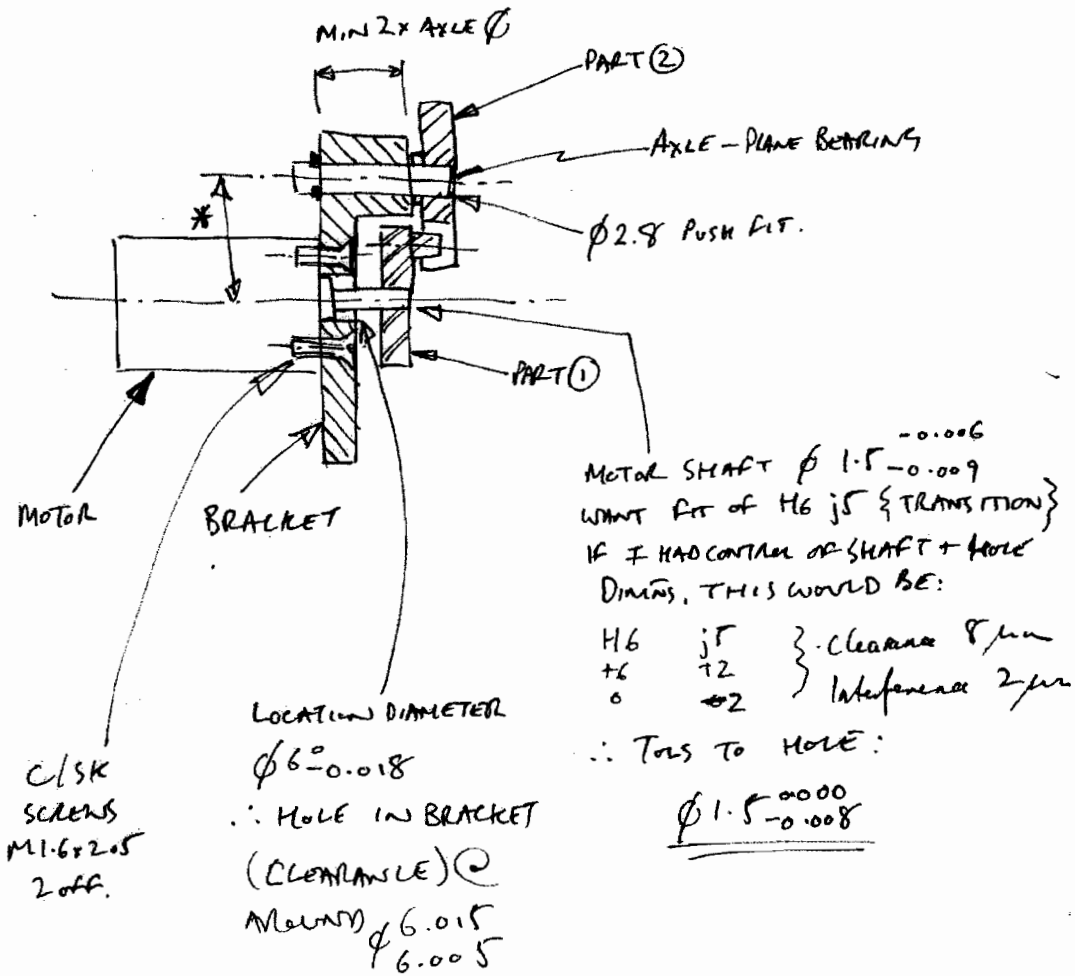 MIN 2x AXLE Ø
PART ②
AXLE - PLANE BEARING
Ø2.8 PUSH FIT.
*
PART ①
MOTOR
BRACKET
MOTOR SHAFT Ø 1.5 -0.006
-0.009
WANT FIT OF H6 j5 {TRANSITION}
IF I HAD CONTROL OF SHAFT + HOLE
DIMNS, THIS WOULD BE:
H6 j5 } Clearance 8 µm
+6 +2
0 -2 Interference 2 µm
∴ TOLS TO HOLE:
Ø 1.5 0.000
-0.008
LOCATION DIAMETER
Ø6 0
-0.018
∴ HOLE IN BRACKET
(CLEARANCE) @
AROUND Ø 6.015
6.005
C/SK
SCREWS
M1.6x2.5
2 off.